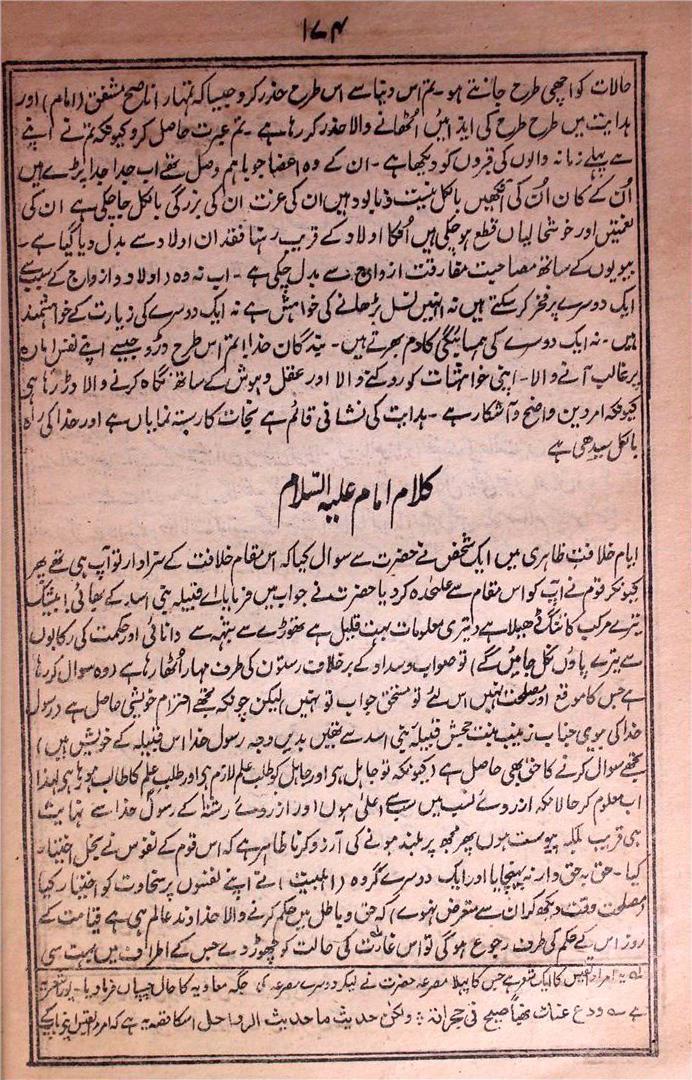 ۱۷۴
حالات کو اچھی طرح جانتے ہو۔ تم اس دنیا سے اس طرح حذر کرو جیسا کہ تمہارا ناصح مشفق (امام) اور
ہدایت میں طرح طرح کی ایذائیں اُٹھانے والا حذر کر رہا ہے۔ تم عبرت حاصل کرو کیونکہ تم نے اپنے
سے پہلے زمانہ والوں کی قبروں کو دیکھا ہے۔ ان کے وہ اعضا جو باہم وصل تھے اب جدا جدا پڑے ہیں
اُن کے کان اُن کی آنکھیں بالکل نیست و نابود ہیں ان کی عزت ان کی بزرگی بالکل جا چکی ہے ان کی
نعمتیں اور خوشحالیاں قطع ہو چکی ہیں اُنکا اولاد کے قریب رہنا فقدان اولاد سے بدل دیا گیا ہے۔
بیویوں کے ساتھ مصاحبت مفارقت ازواج سے بدل چکی ہے۔ اب نہ وہ (اولاد و ازواج کے سبب سے
ایک دوسرے پر فخر کر سکتے ہیں نہ انہیں نسل بڑھانے کی خواہش ہے نہ ایک دوسرے کی زیارت کے خواہشمند
ہیں۔ نہ ایک دوسرے کی ہمسائیگی کا دم بھرتے ہیں۔ بندگان خدا! تم اس طرح ڈرو جیسے اپنے نفس امارہ
پر غالب آنے والا۔ اپنی خواہشات کو روکنے والا اور عقل و ہوش کے ساتھ نگاہ کرنے والا ڈر رہا ہی
کیونکہ امر دین واضح و آشکار ہے۔ ہدایت کی نشانی قائم ہے نجات کا رستہ نمایاں ہے اور خدا کی راہ
بالکل سیدھی ہے
کلام امام علیہ السّلام
ایام خلافت ظاہری میں ایک شخص نے حضرت سے سوال کیا کہ اس مقام خلافت کے سزاوار تو آپ ہی تھے پھر
کیونکر قوم نے آپ کو اس مقام سے علٰحدہ کر دیا حضرت نے جواب میں فرمایا۔ اے قبیلہ بنی اسد کے بھائی! بیشک
تیرے مرکب کا تنگ ڈھیلا ہے (تیری معلومات بہت قلیل ہے تھوڑے سے شبہہ سے دانائی اور حکمت کی رکابوں
سے تیرے پاؤں نکل جائیں گے) تو صواب و سداد کے برخلاف رستوں کی طرف مہار اُٹھا رہا ہے (وہ سوال کر رہا
ہے جس کا موقع اور مصلحت نہیں اس لئے تو مستحق جواب تو نہیں) لیکن چونکہ تجھے احترام خویشی حاصل ہے (رسول
خدا کی بیوی جناب زینب بنت جحش قبیلۂ بنی اسد سے تھیں بدیں وجہ رسول خدا اس قبیلہ کے خویش ہیں)
تجھے سوال کرنے کا حق بھی حاصل ہے (کیونکہ تو جاہل ہی اور جاہل کو طلب علم لازم ہی اور طلب علم کا طالب ہو رہا ہی) لہٰذا
اب معلوم کر حالانکہ از روئے نسب میں سب سے اعلیٰ ہوں اور از روئے رشتہ کے رسول خدا سے نہایت
ہی قریب بلکہ پیوست ہوں پھر مجھ پر بلند ہونے کی آرزو کرنا ظاہر ہے کہ اس قوم کے نفوس نے بخل اختیار
کیا۔ حق بہ حق دار نہ پہنچایا اور ایک دوسرے گروہ (اہلبیت) نے اپنے نفسوں پر سخاوت کو اختیار کیا
(مصلحت وقت دیکھ کر ان سے متعرض نہوئے) کہ حق و باطل میں حکم کرنے والا خداوند عالم ہی ہے قیامت کے
روز اس کے حکم کی طرف رجوع ہو گی تو اس غارت کی حالت کو چھوڑ دے جس کے اطراف میں بہت سی
لہ یہ امراءالقیس کا ایک شعر ہے جس کا پہلا مصرعہ حضرت نے لیکر دوسرے مصرعہ کی جگہ معاویہ کا حال چسپاں فرما دیا۔ پورا شعر یہ
ہے ؎ ودع عنک نھباً صیح فی حجراتہ ؞ ولکن حدیث ما حدیث الرواحل اسکا قصہ یہ ہے کہ امرءالقیس اپنے باپ کے